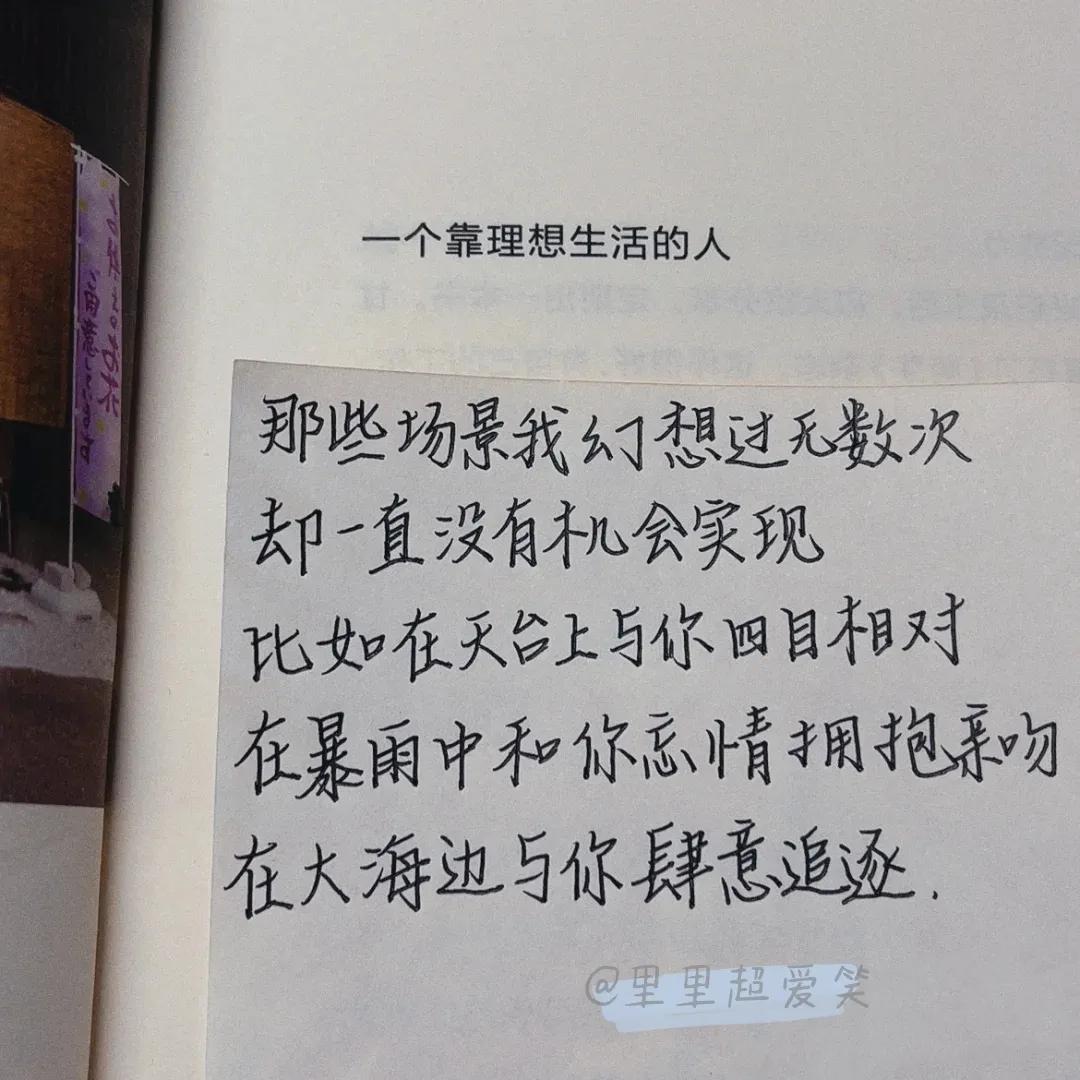 一个靠理想生活的人
那些场景我幻想过无数次
却一直没有机会实现
比如在天台上与你四目相对
在暴雨中和你忘情拥抱亲吻
在大海边与你肆意追逐.
@里里超爱笑